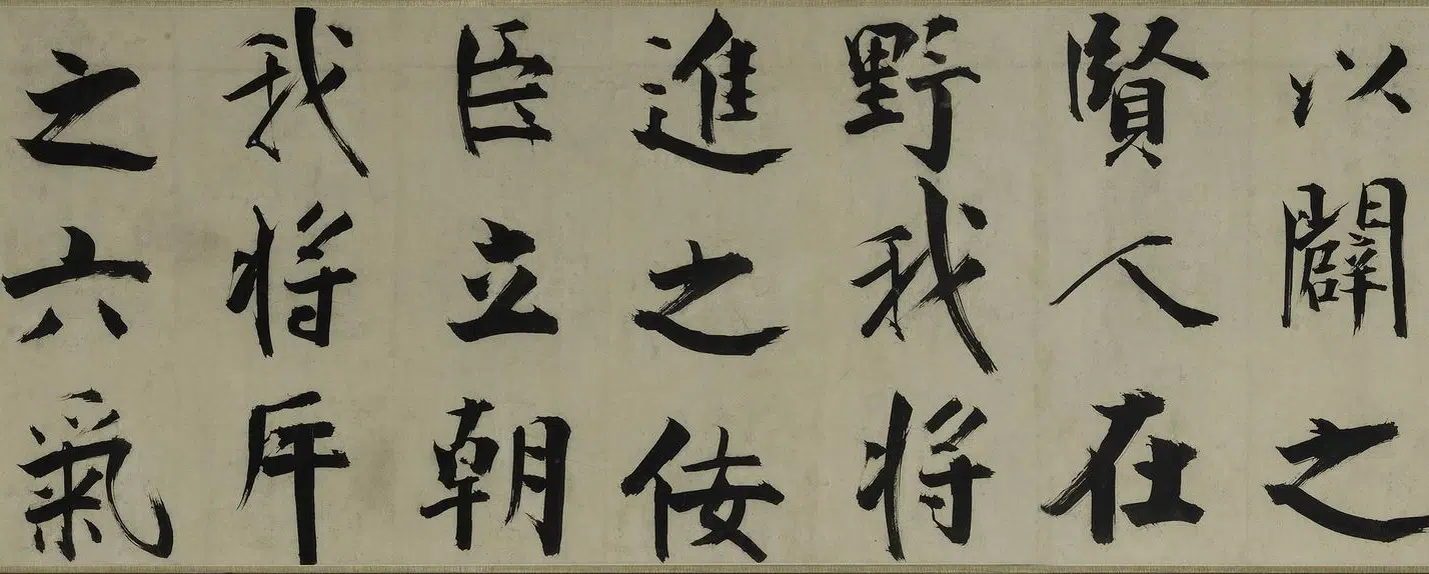 以闢之
賢人在
野我将
進之佞
臣立朝
我将斥
之六氣